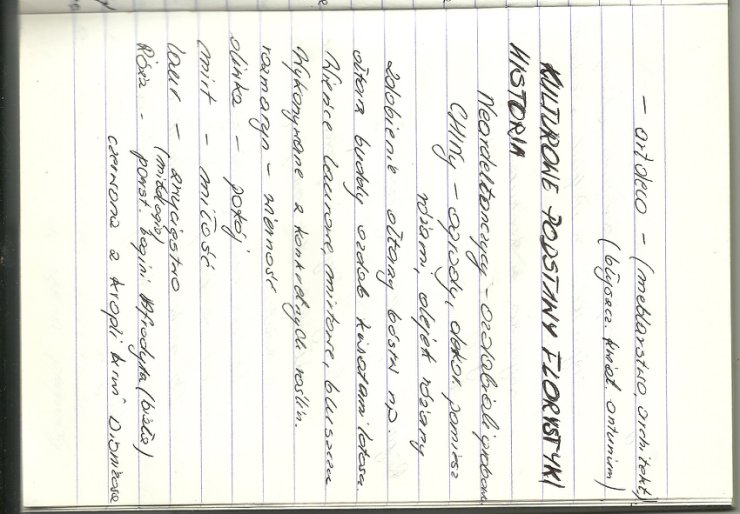 - art deco - (meblarstwo, architekt.)
(błyszcz. kwiat. anturium)
KULTUROWE PODSTAWY FLORYSTYKI
HISTORIA
Neandeltanczycy - ozdabiali groby
CHINY - ogrody, dekor. pomiesz
różami, olejek różany
zdobienie ołtarzy bóstw np.
ołtarz buddy ozdob kwiatami lotosu.
Wieńce laurowe, mirtowe, bluszczu
wykonywane z konkretnych roślin.
rozmaryn - wierność
oliwka - pokój
mirt - miłość
laur - zwycięstwo
(mitologia)
Róża - powst. bogini Afrodyta (biała)
czerwona z kropli krwi Dionizosa